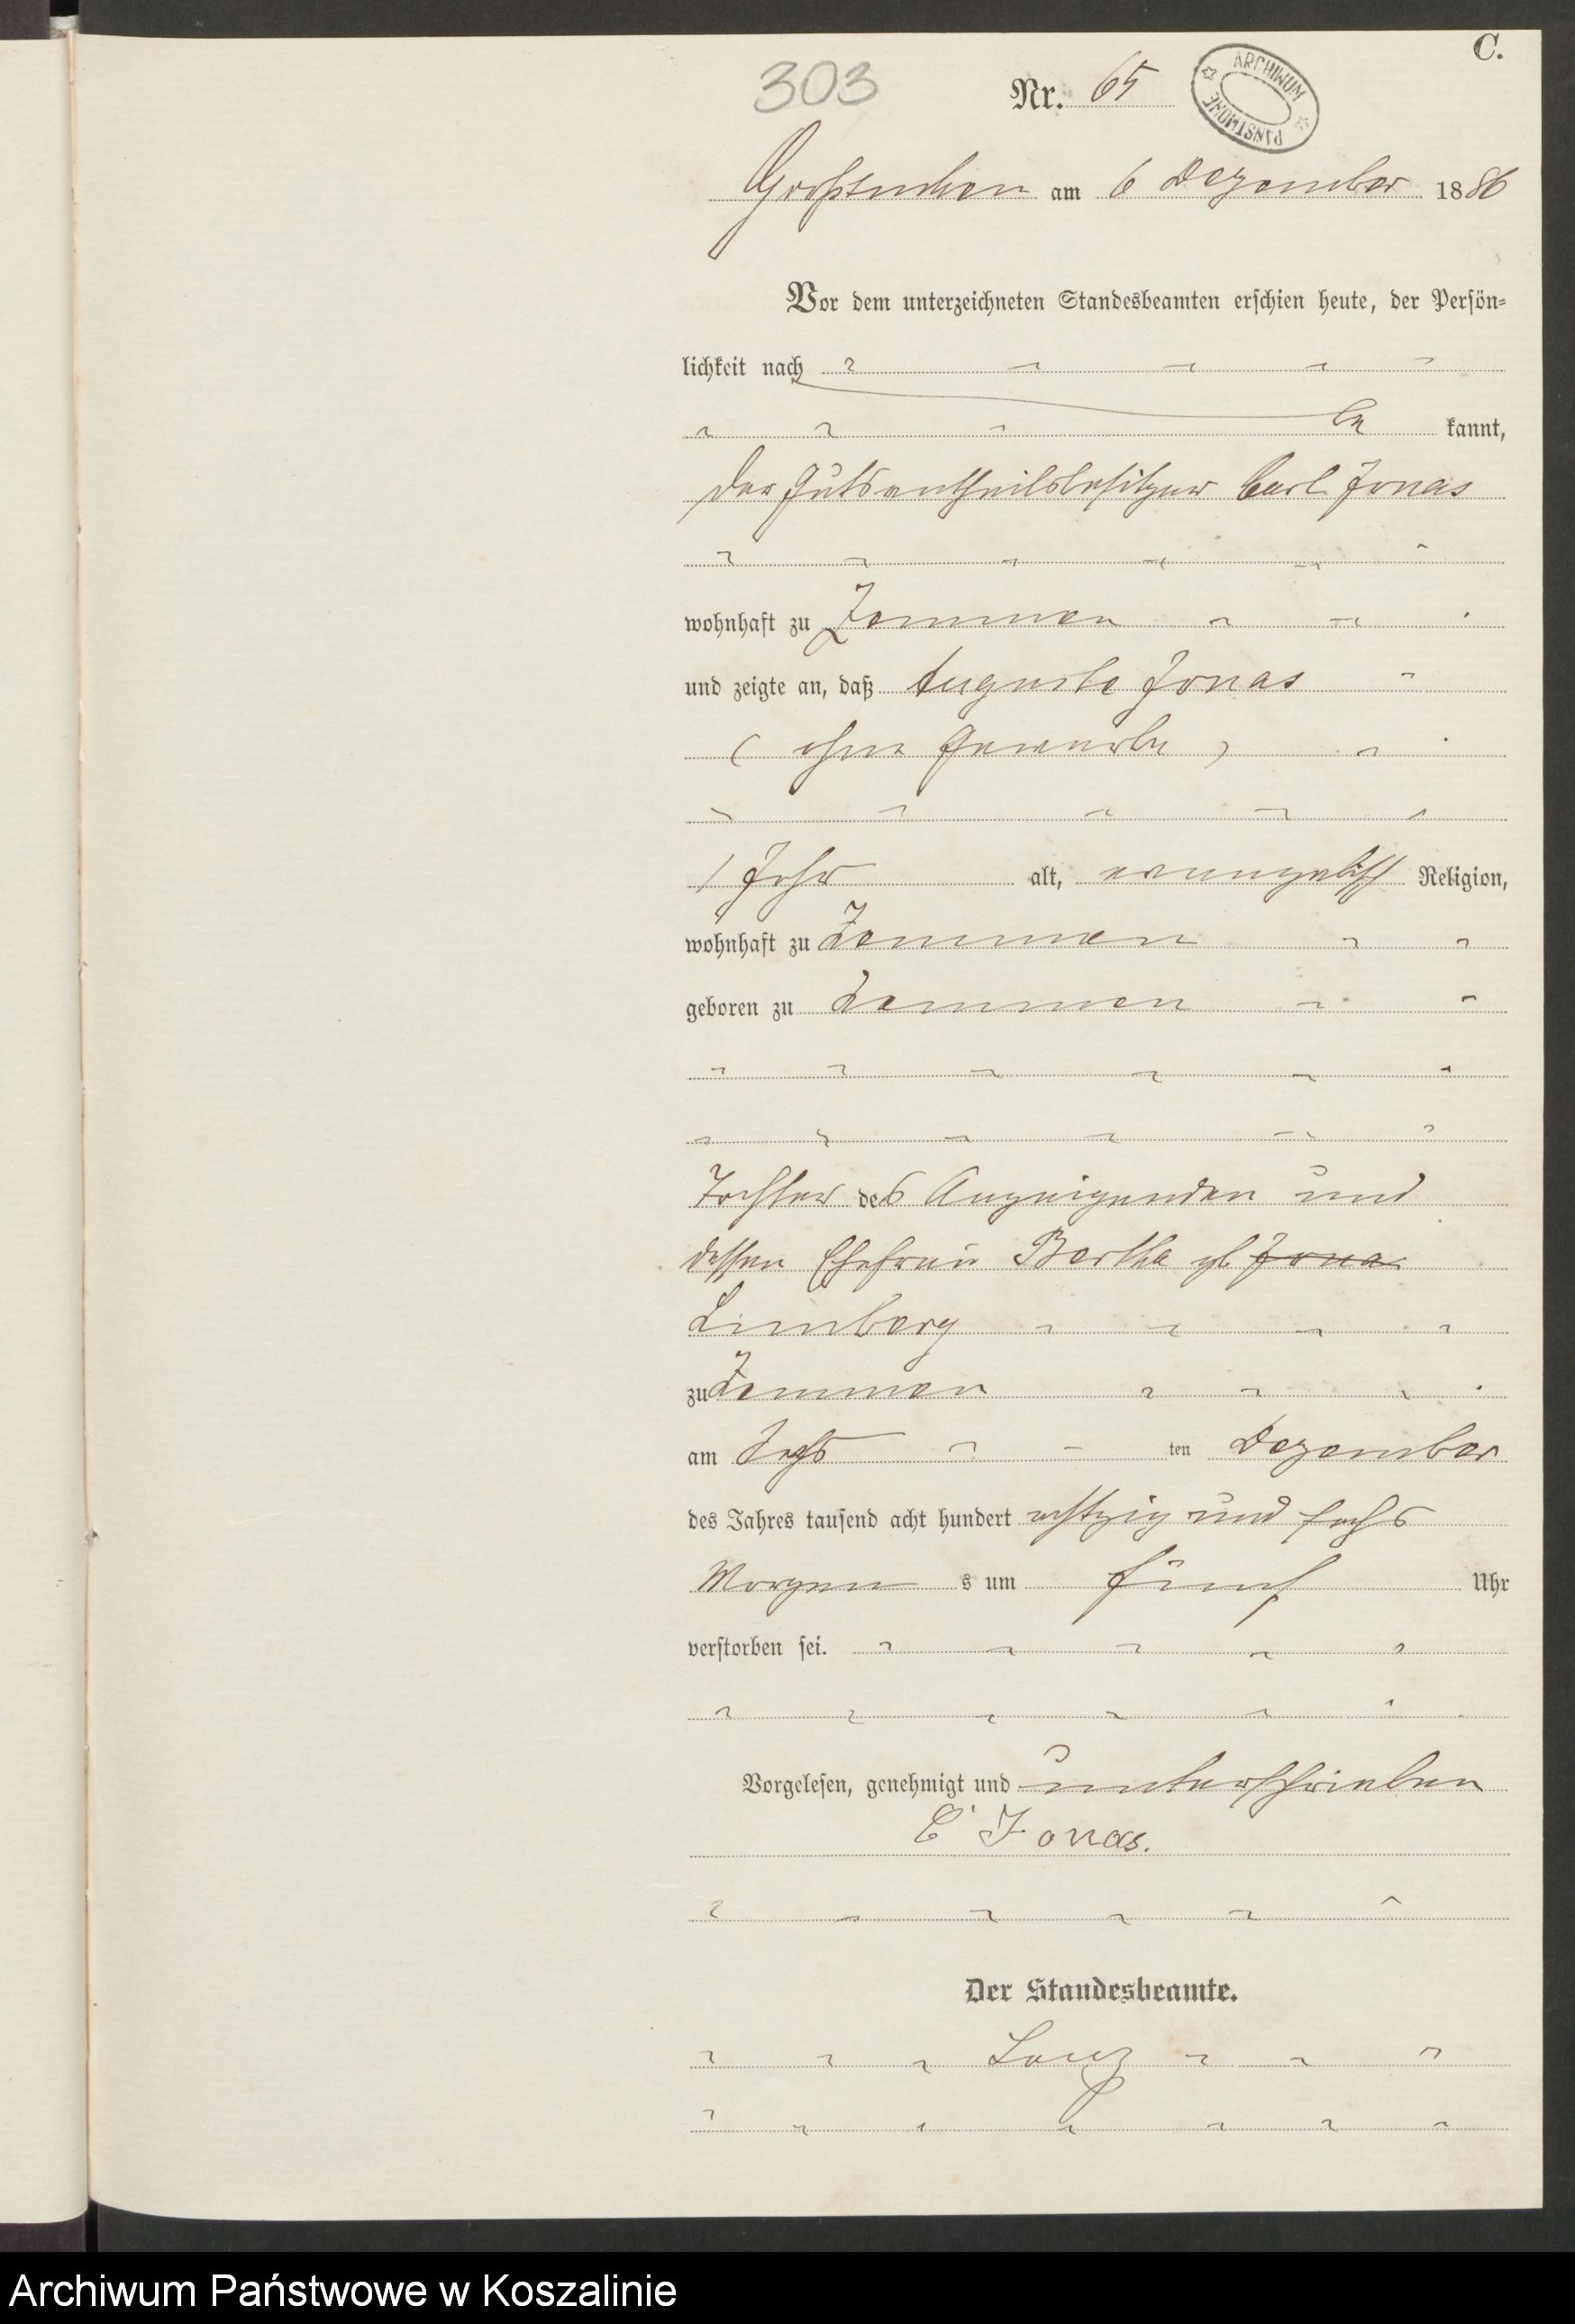 C.
303
Nr. 65
ARCHIWUM PAŃSTWOWE
Großtuchen am 6 Dezember 1886
Vor dem unterzeichneten Standesbeamten erschien heute, der Persön-
lichkeit nach
be kannt,
der Gutsantheilsbesitzer Carl Jonas
wohnhaft zu Zemmen
und zeigte an, daß Auguste Jonas
( ohne Gewerbe )
1 Jahr alt, evangelisch Religion,
wohnhaft zu Zemmen
geboren zu Zemmen
Tochter des Anzeigenden und
dessen Ehefrau Bertha gb Jona
Limberg
zu Zemmen
am Sechs ten Dezember
des Jahres tausend acht hundert achtzig und sechs
Morgen s um fünf Uhr
verstorben sei.
Vorgelesen, genehmigt und unterschrieben
C Jonas.
Der Standesbeamte.
Archiwum Państwowe w Koszalinie